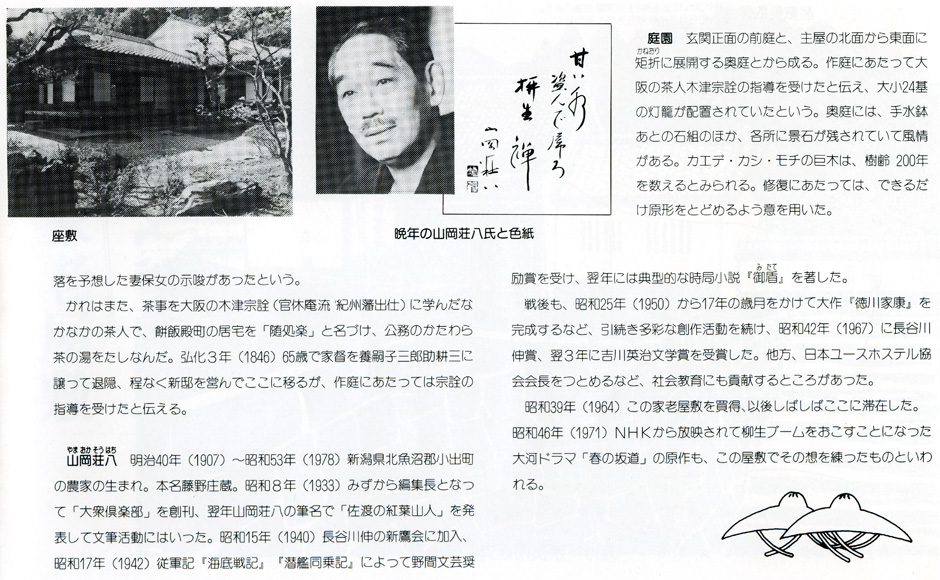 甘い
盗んで帰ろ
柳生 禅
山岡荘八
座敷
晩年の山岡荘八氏と色紙
庭園 玄関正面の前庭と、主屋の北面から東面に
かねおり
矩折に展開する奥庭とから成る。作庭にあたって大
阪の茶人木津宗詮の指導を受けたと伝え、大小24基
の灯籠が配置されていたという。奥庭には、手水鉢
あとの石組のほか、各所に景石が残されていて風情
がある。カエデ・カシ・モチの巨木は、樹齢 200年
を数えるとみられる。修復にあたっては、できるだ
け原形をとどめるよう意を用いた。
落を予想した妻保女の示唆があったという。
かれはまた、茶事を大阪の木津宗詮(官休庵流 紀州藩出仕)に学んだな
かなかの茶人で、餅飯殿町の居宅を「随処楽」と名づけ、公務のかたわら
茶の湯をたしなんだ。弘化3年(1846)65歳で家督を養嗣子三郎助耕三に
譲って退隠、程なく新邸を営んでここに移るが、作庭にあたっては宗詮の
指導を受けたと伝える。
やまおかそうはち
山岡荘八 明治40年(1907)~昭和53年(1978)新潟県北魚沼郡小出町
の農家の生まれ。本名藤野庄蔵。昭和8年(1933)みずから編集長となっ
て「大衆倶楽部」を創刊、翌年山岡荘八の筆名で「佐渡の紅葉山人」を発
表して文筆活動にはいった。昭和15年(1940)長谷川伸の新鷹会に加入、
昭和17年(1942)従軍記『海底戦記』『潜艦同乗記』によって野間文芸奨
みたて
励賞を受け、翌年には典型的な時局小説『御盾』を著した。
戦後も、昭和25年(1950)から17年の歳月をかけて大作『徳川家康』を
完成するなど、引続き多彩な創作活動を続け、昭和42年(1967)に長谷川
伸賞、翌3年に吉川英治文学賞を受賞した。他方、日本ユースホステル協
会会長をつとめるなど、社会教育にも貢献するところがあった。
昭和39年(1964)この家老屋敷を買得、以後しばしばここに滞在した。
昭和46年(1971)NHKから放映されて柳生ブームをおこすことになった
大河ドラマ「春の坂道」の原作も、この屋敷でその想を練ったものといわ
れる。